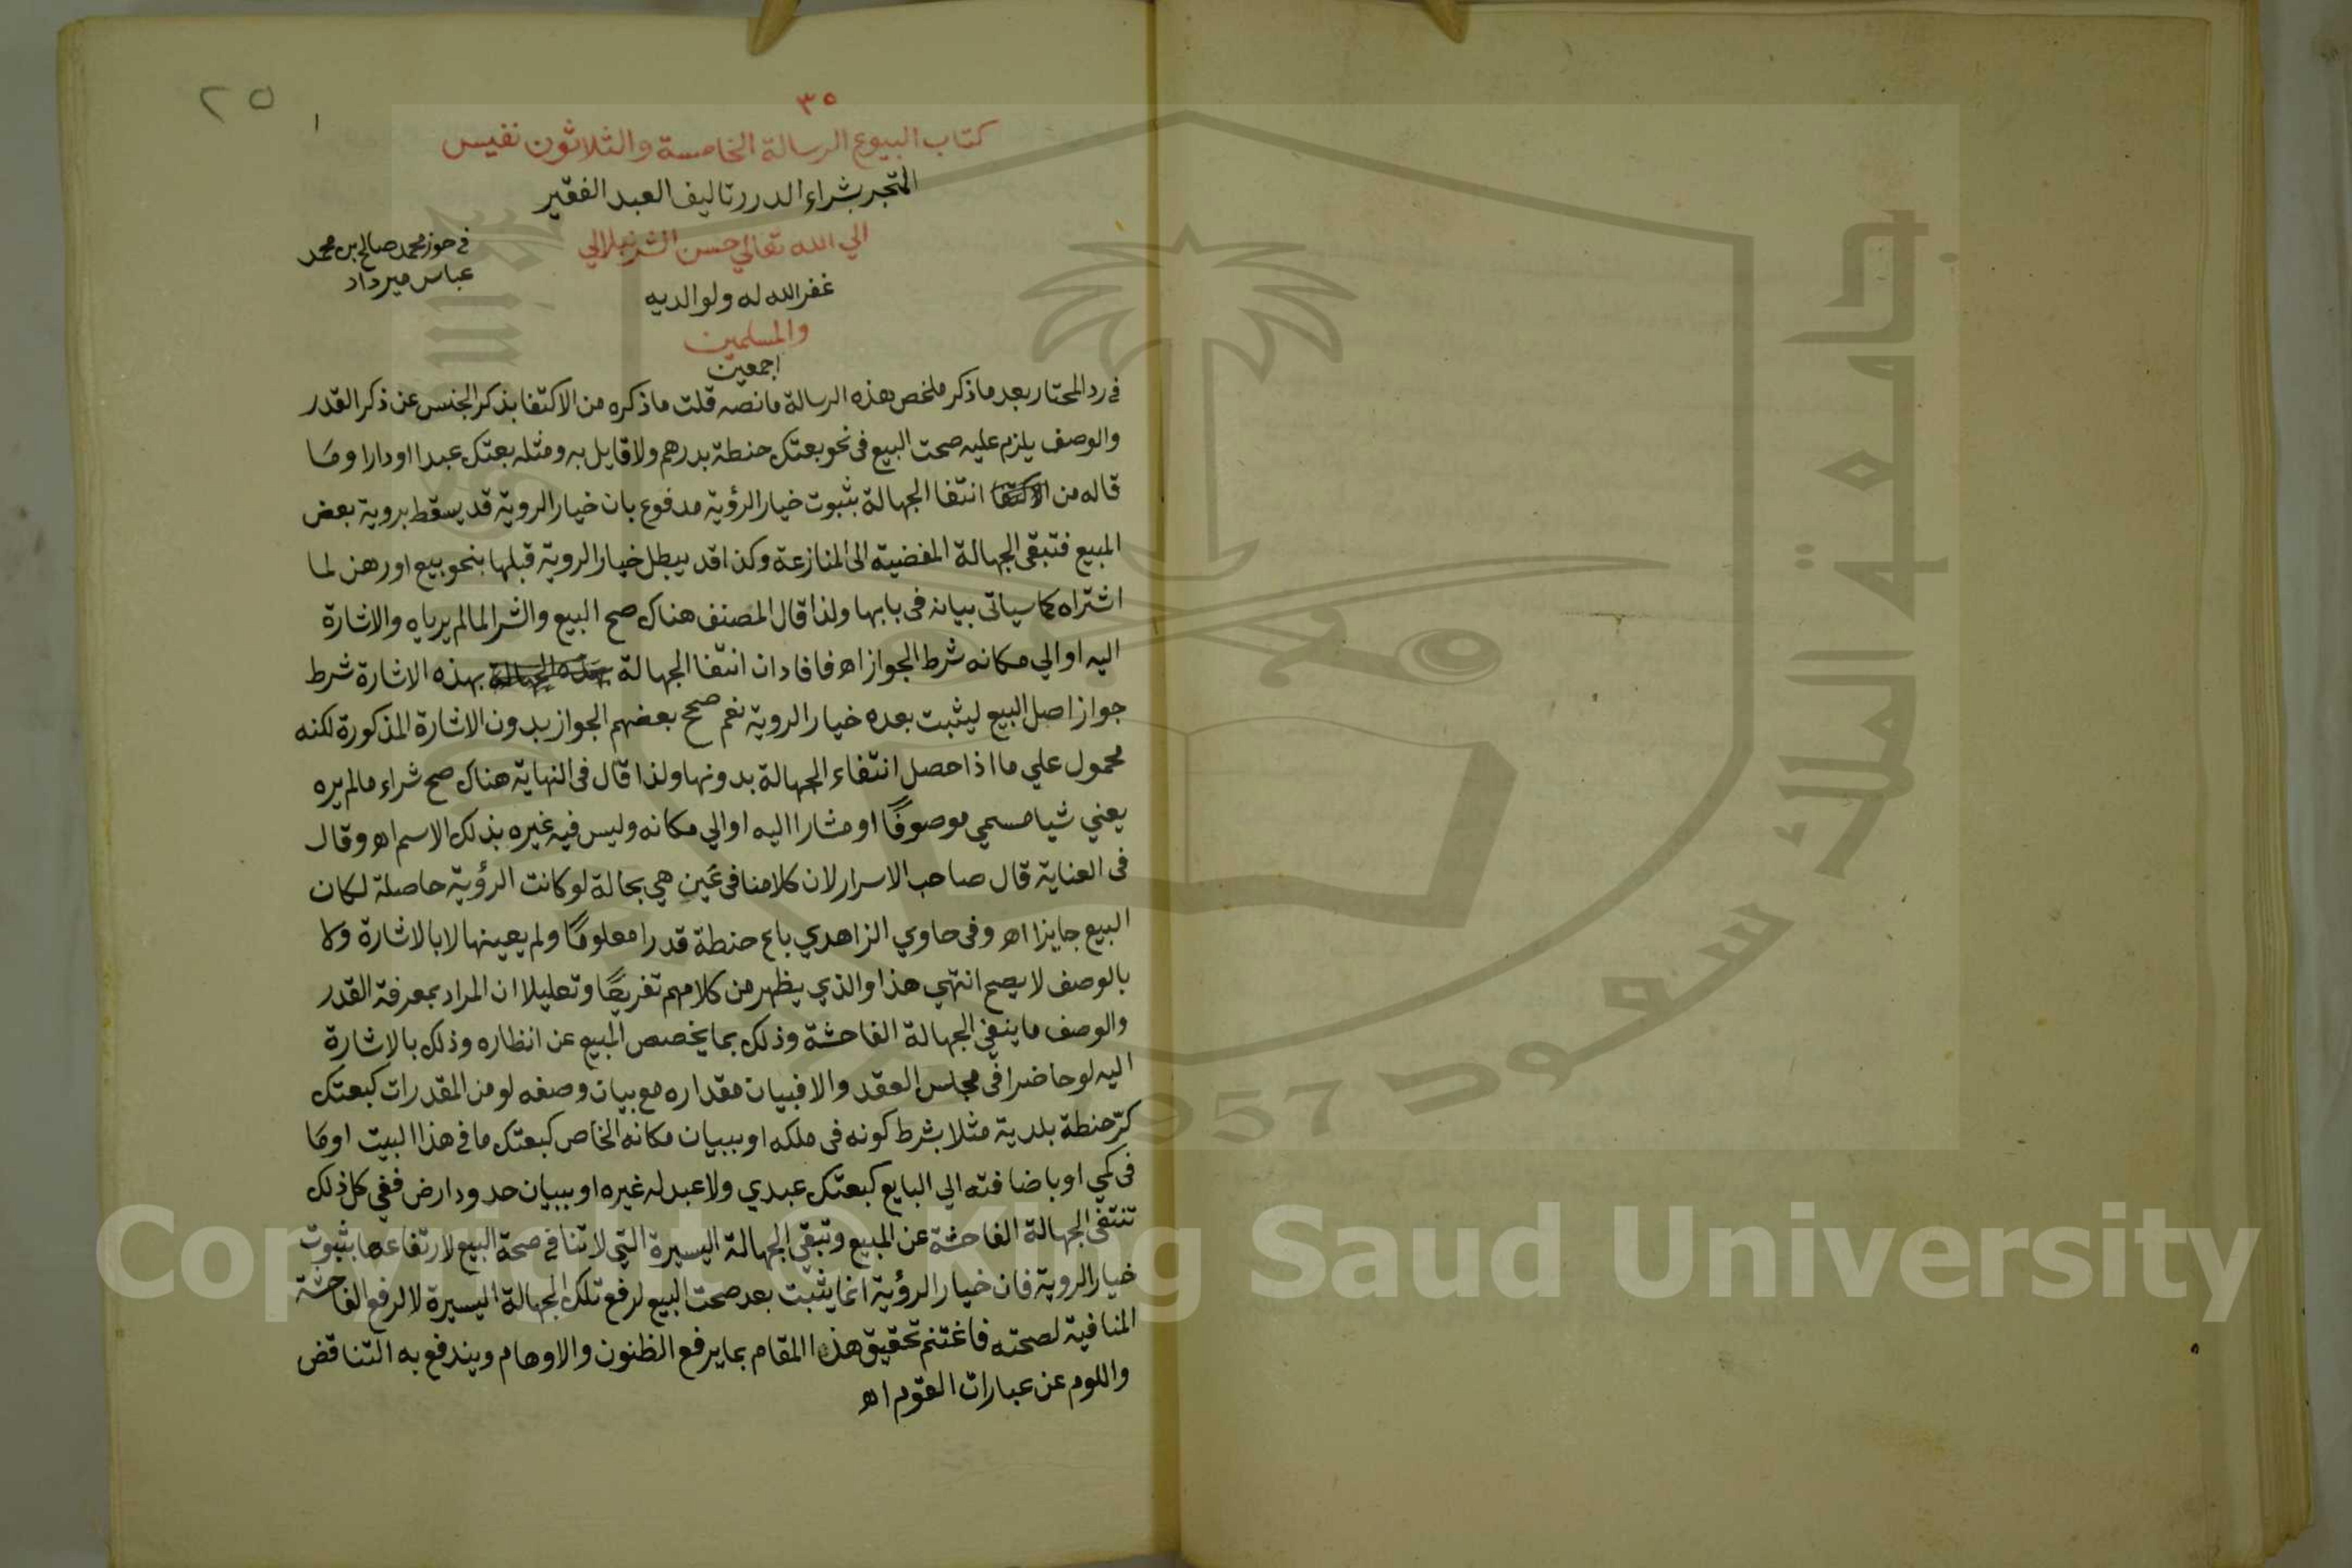 ٣٥
٢٥
١
كتاب البيوع الرسالة الخامسة والثلاثون نفيس
المتجر بشراء الدرر تاليف العبد الفقير
الي الله تعالي حسن الشرنبلالي
غفر الله له ولوالديه
والمسلمين
اجمعين
في حوز محمد صالح بن محمد
عباس ميرداد
في رد المحتار بعد ما ذكر ملخص هذه الرسالة ما نصه قلت ما ذكره من الاكتفا بذكر الجنس عن ذكر القدر
والوصف يلزم عليه صحت البيع في نحو بعتك حنطة بدرهم ولا قايل به ومثله بعتك عبدا او دارا وما
قاله من الاكتفا انتفا الجهالة بثبوت خيار الرؤية مدفوع بان خيار الروية قد يسقط بروية بعض
المبيع فتبقى الجهالة المفضية الى المنازعة وكذا قد يبطل خيار الروية قبلها بنحو بيع او رهن لما
اشتراه كما سياتي بيانه في بابها ولذا قال المصنف هناك صح البيع والشرا لما لم يرياه والاشارة
اليه او الي مكانه شرط الجواز اه فافاد ان انتفا الجهالة بهذه الجهالة بهذه الاشارة شرط
جواز اصل البيع ليثبت بعده خيار الروية نعم صحح بعضهم الجواز بدون الاشارة المذكورة لكنه
محمول علي ما اذا حصل انتفاء الجهالة بدونها ولذا قال في النهاية هناك صح شراء ما لم يره
يعني شيا مسمي موصوفًا او مشارا اليه او الي مكانه وليس فيه غيره بذلك الاسم اه وقال
في العناية قال صاحب الاسرار لان كلامنا في عين هي بحالة لو كانت الرؤية حاصلة لكان
البيع جايزا اه وفي حاوي الزاهدي باع حنطة قدرا معلومًا ولم يعينها لا بالاشارة ولا
بالوصف لا يصح انتهي هذا والذي يظهر من كلامهم تفريعًا وتعليلا ان المراد بمعرفة القدر
والوصف ما ينفي الجهالة الفاحشة وذلك بما يخصص المبيع عن انظاره وذلك بالاشارة
اليه لو حاضرا في مجلس العقد والا فبيان مقداره مع بيان وصفه لو من المقدرات كبعتك
كرّ حنطة بلدية مثلا بشرط كونه في ملكه او ببيان مكانه الخاص كبعتك ما في هذا البيت او ما
في كمي او باضافته الي البايع كبعتك عبدي ولا عبد له غيره او ببيان حدود ارض ففي كل ذلك
تنتفي الجهالة الفاحشة عن المبيع وتبقي الجهالة اليسيرة التي لا تنافي صحة البيع لارتفاعها بثبوت
خيار الروية فان خيار الرؤية انما يثبت بعد صحت البيع لرفع تلك الجهالة اليسيرة لا لرفع الفاحشة
المنافية لصحته فاغتنم تحقيق هذا المقام بما يرفع الظنون والاوهام ويندفع به التناقض
واللوم عن عبارات القوم اه
جامعة الملك سعود
1957
Copyright © King Saud University